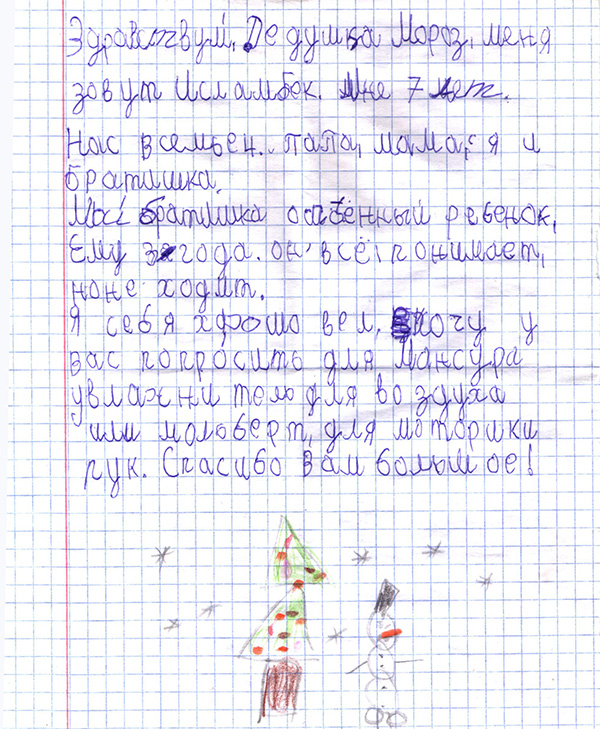 Здравствуй, Дедушка Мороз, меня
зовут Исламбек. Мне 7 лет.
Нас всемьеч.. папа, мама, я и
братишка.
Мой братишка особенный ребенок,
Ему 3 года. он всё понимает,
ноне ходит.
Я себя хорошо вел. Хочу у
вас попросить для Мансура
увлажнитель для воздуха
или мольберт, для моторики
рук. Спасибо Вам большое!